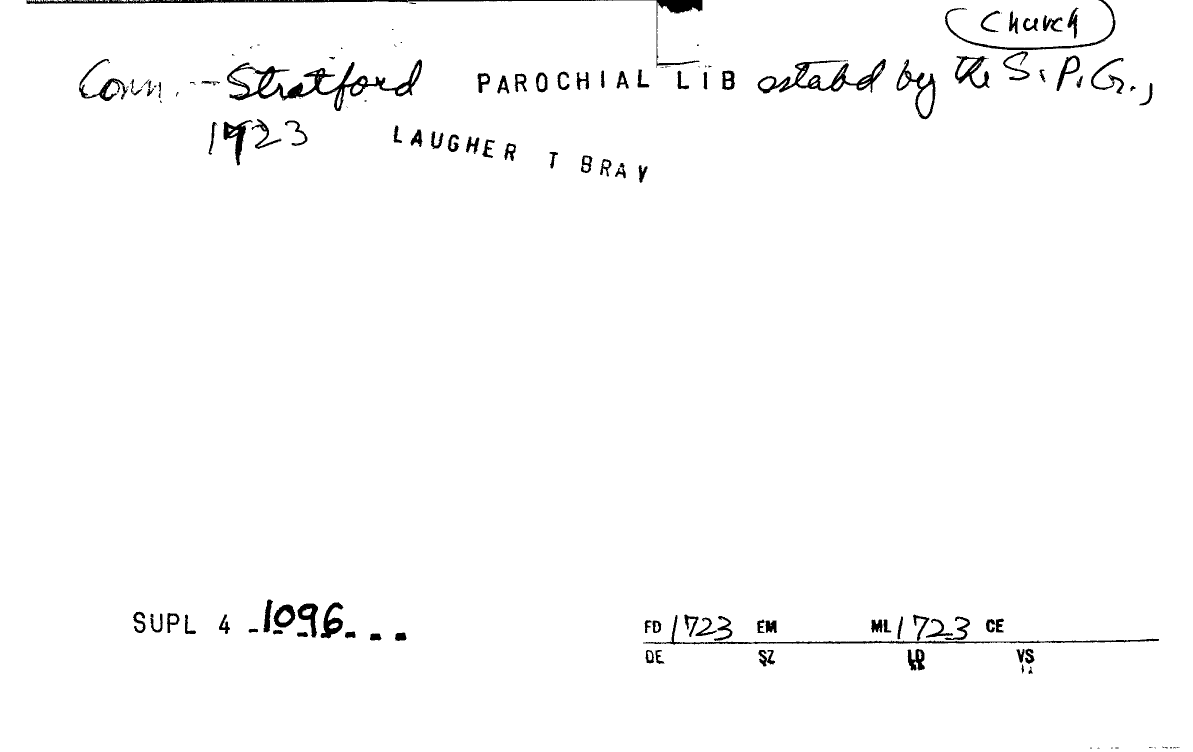 Church
Conn. - Stratford PAROCHIAL LIB estabd by the S.P.G.,
1723 LAUGHER T BRAY
SUPL 4 1096
FD 1723 EM ML 1723 CE
DE SZ LD VS